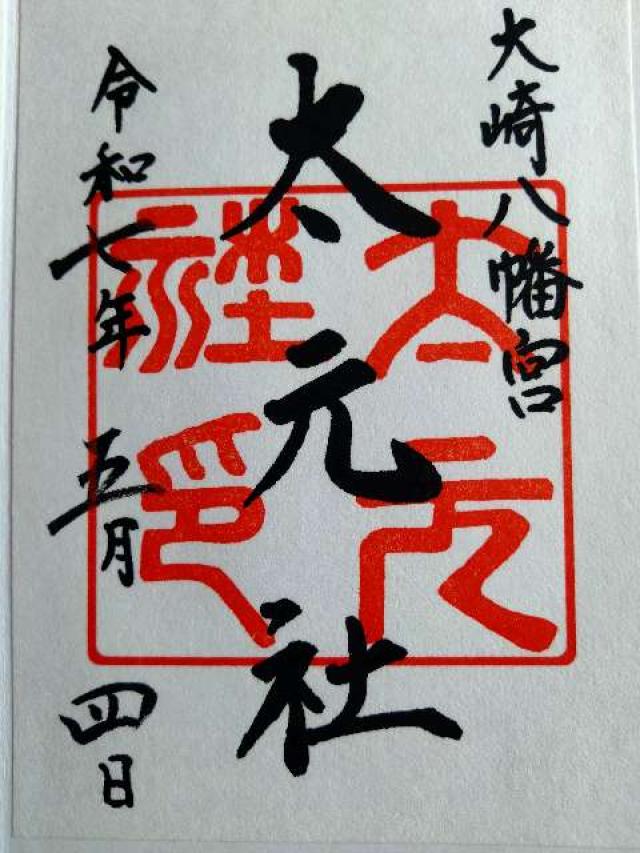 大崎八幡宮
太元社
令和七年 五月 四日
太元社印